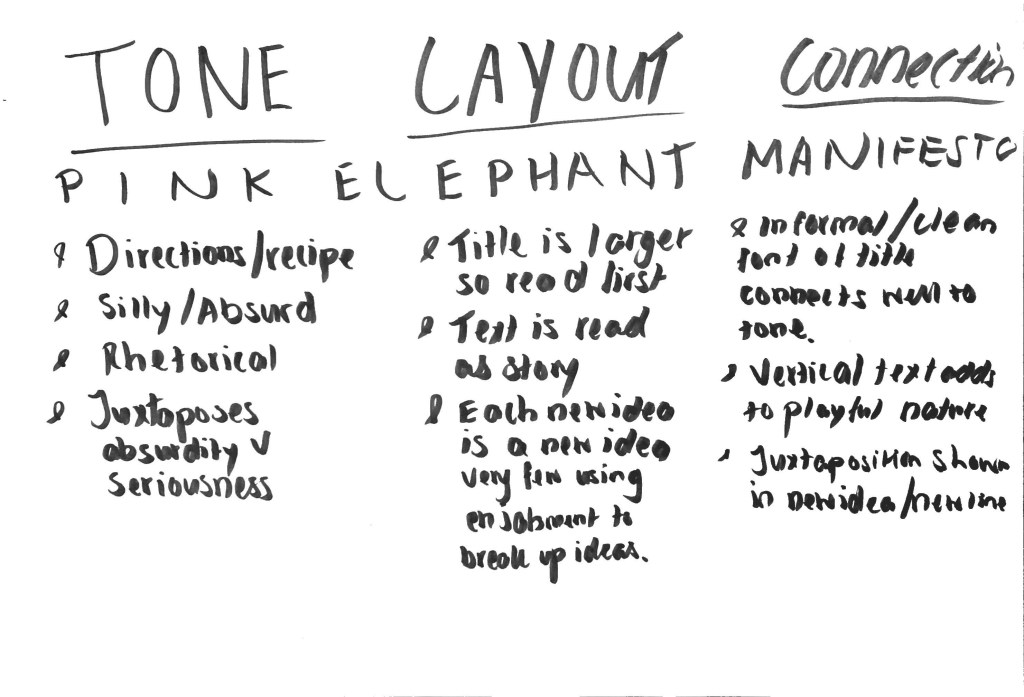 TONE
LAYOUT
Connection
PINK ELEPHANT MANIFESTO
Directions/recipe
Silly/Absurd
Rhetorical
Juxtaposes
absurdity V
seriousness
Title is larger
so read first
Text is read
as story
Each new idea
is a new idea
very few using
enjabment to
break up ideas.
Informal/clean
font of title
connects well to
tone.
Vertical text adds
to playful nature
Juxtaposition shown
in new idea/new line